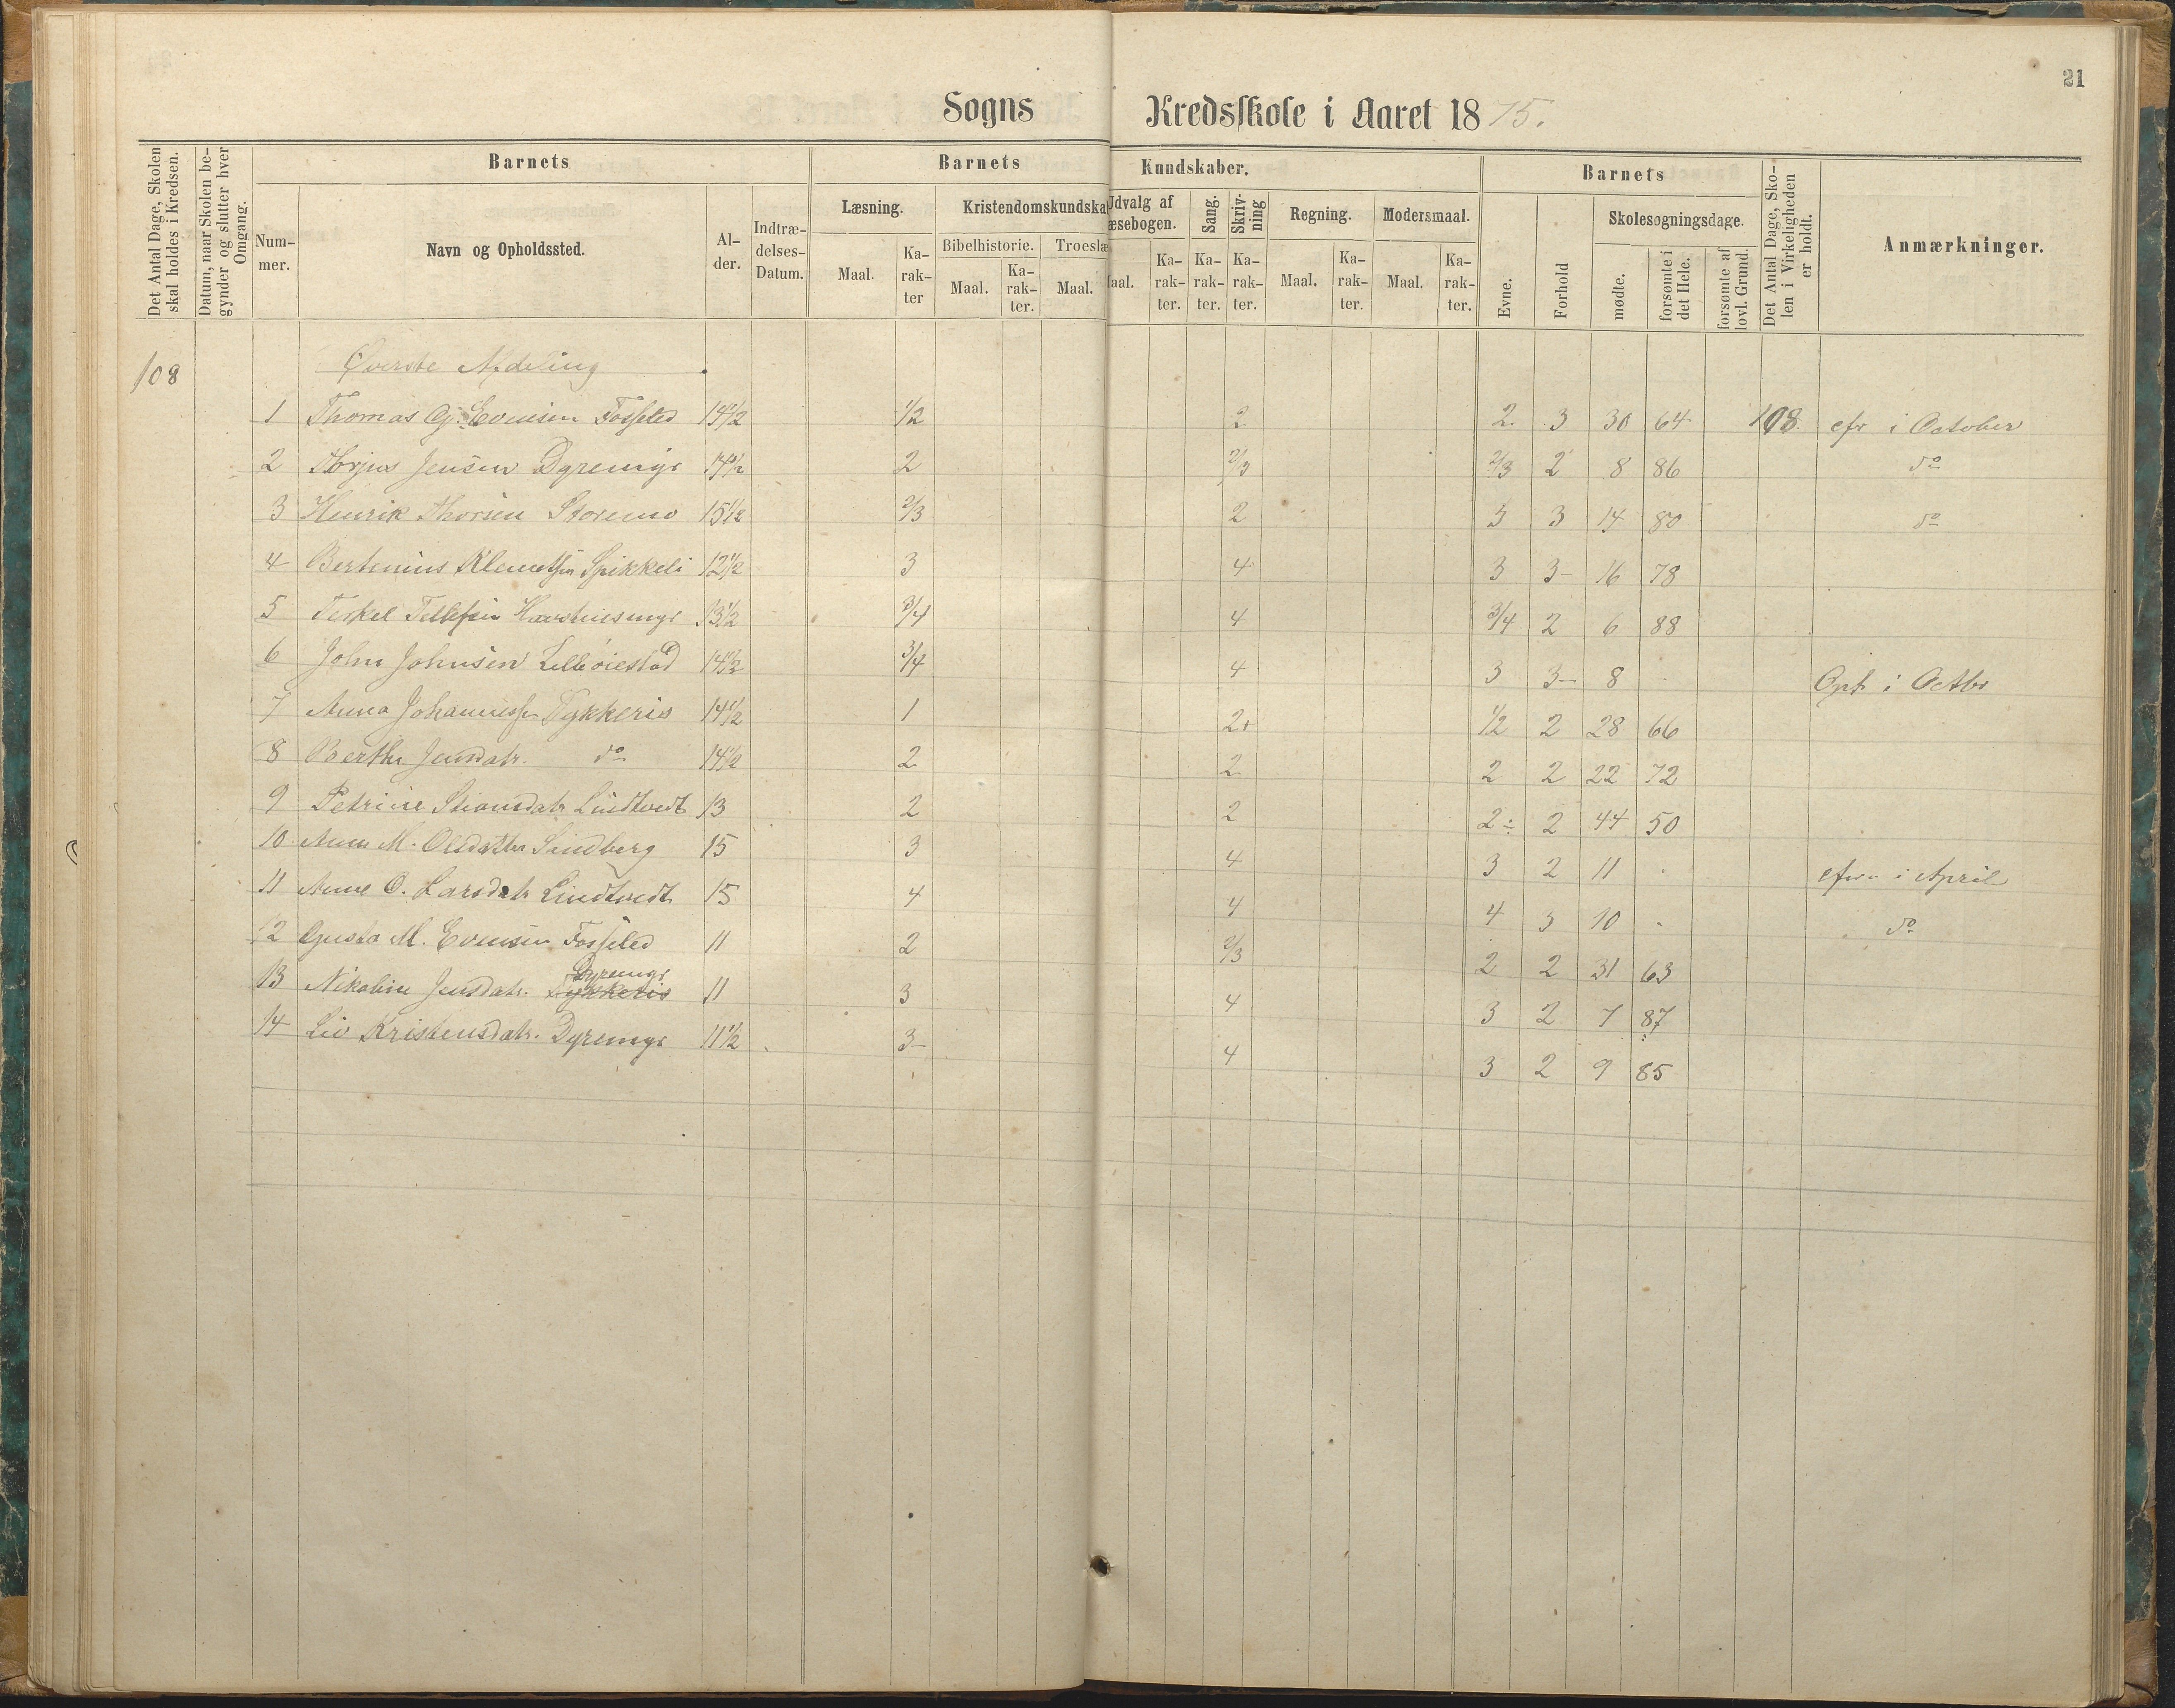 21
Sogns Kredsskole i Aaret 18 75.
Det Antal Dage, Skolen skal holdes i Kredsen.
Datum, naar Skolen begynder og slutter hver Omgang.
Barnets
Barnets Kundskaber.
Barnets
Det Antal Dage, Skolen i Virkeligheden er holdt.
Anmærkninger.
Nummer.
Navn og Opholdssted.
Alder.
Indtrædelses-Datum.
Læsning.
Kristendomskundska
Udvalg af
æsebogen.
Sang.
Skrivning
Regning.
Modersmaal.
Evne.
Forhold
Skolesøgningsdage.
Bibelhistorie.
Troeslæ
Maal.
Karakter
Maal.
Karakter.
Maal.
Maal.
Karakter.
Karakter.
Karakter.
Maal.
Karakter.
Maal.
Karakter.
mødte.
forsømte i det Hele.
forsømte af lovl. Grund.
108 Øverste Afdeling
1 Thomas Gj. Evensen Fosseled 14 1/2 1/2 2 2. 3 30 64 108. cfr i October
2 Torjus Jensen Dyremyr 14 1/2 2 2/3 2/3 2 8 86 do
3 Henrik Thorsen Storemo 15 1/2 2/3 2 3 3 14 80 do
4 Bertinius Klemetsen Spikkeli 12 1/2 3 4 3 3- 16 78
5 Terkel Tellefsen 13 1/2 3/4 4 3/4 2 6 88
6 John Johnsen Lilleøiestad 14 1/2 3/4 4 3 3- 8 - Opt i Octbr
7 Anna Johannessen Tykkeris 14 1/2 1 2 1/2 2 28 66
8 Berthe Jensdatr. do 14 1/2 2 2 2 2 22 72
9 Petrine Stiansdatr Lindtvedt 13 2 2 2 2 44 50
10 Anne M. Olsdatter Lindberg 15 3 4 3 2 11 - cfr i April
11 Anne O. Larsdatr Lindtvedt 15 4 4 4 3 10 - do
12 Gusta M. Evensen Fosseled 11 2 2/3 2 2 31 63
Dyremyr
13 Nikoline Jensdatr. Tykkeris 11 3 4 3 2 7 87
14 Liv Kristensdatr. Dyremyr 11 1/2 3- 4 3 2 9 85